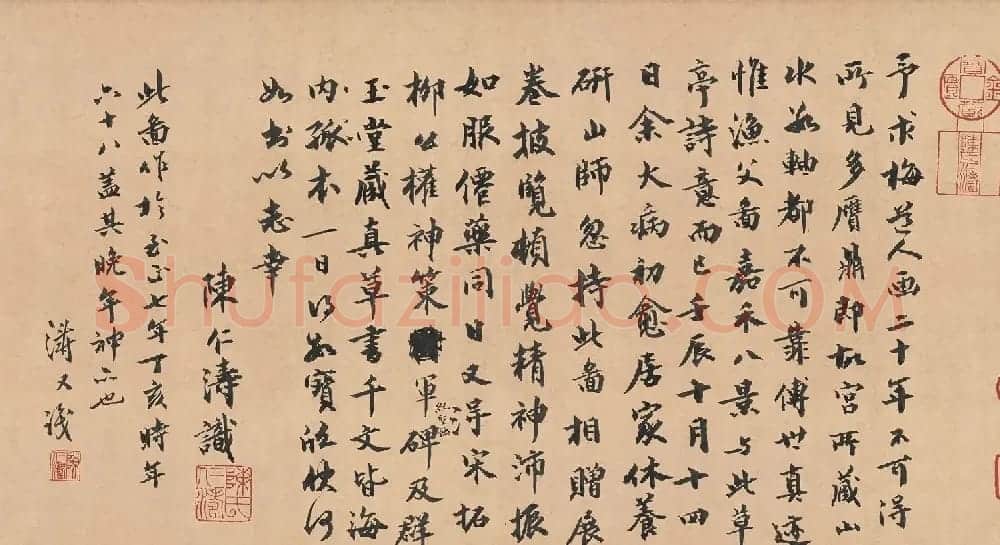 予求梅道人画二十年不可得
所見多贋鼎即故宮所藏山
水數軸都不可靠傳世真迹
惟漁父圖嘉禾八景与此草
亭詩意而已壬辰十月十四
日余大病初愈居家休養
研山師忽持此圖相贈展
卷披覽頓覺精神沛振
如服僊藥同日又得宋拓
柳公權神策軍碑及群
玉堂藏真草書千文皆海
内孤本一日得數寶欣快何
如書以志幸
陳仁濤識
此圖作於至正七年丁亥時年
六十八蓋其晚年神品也
濤又識
Shufaziliao.COM